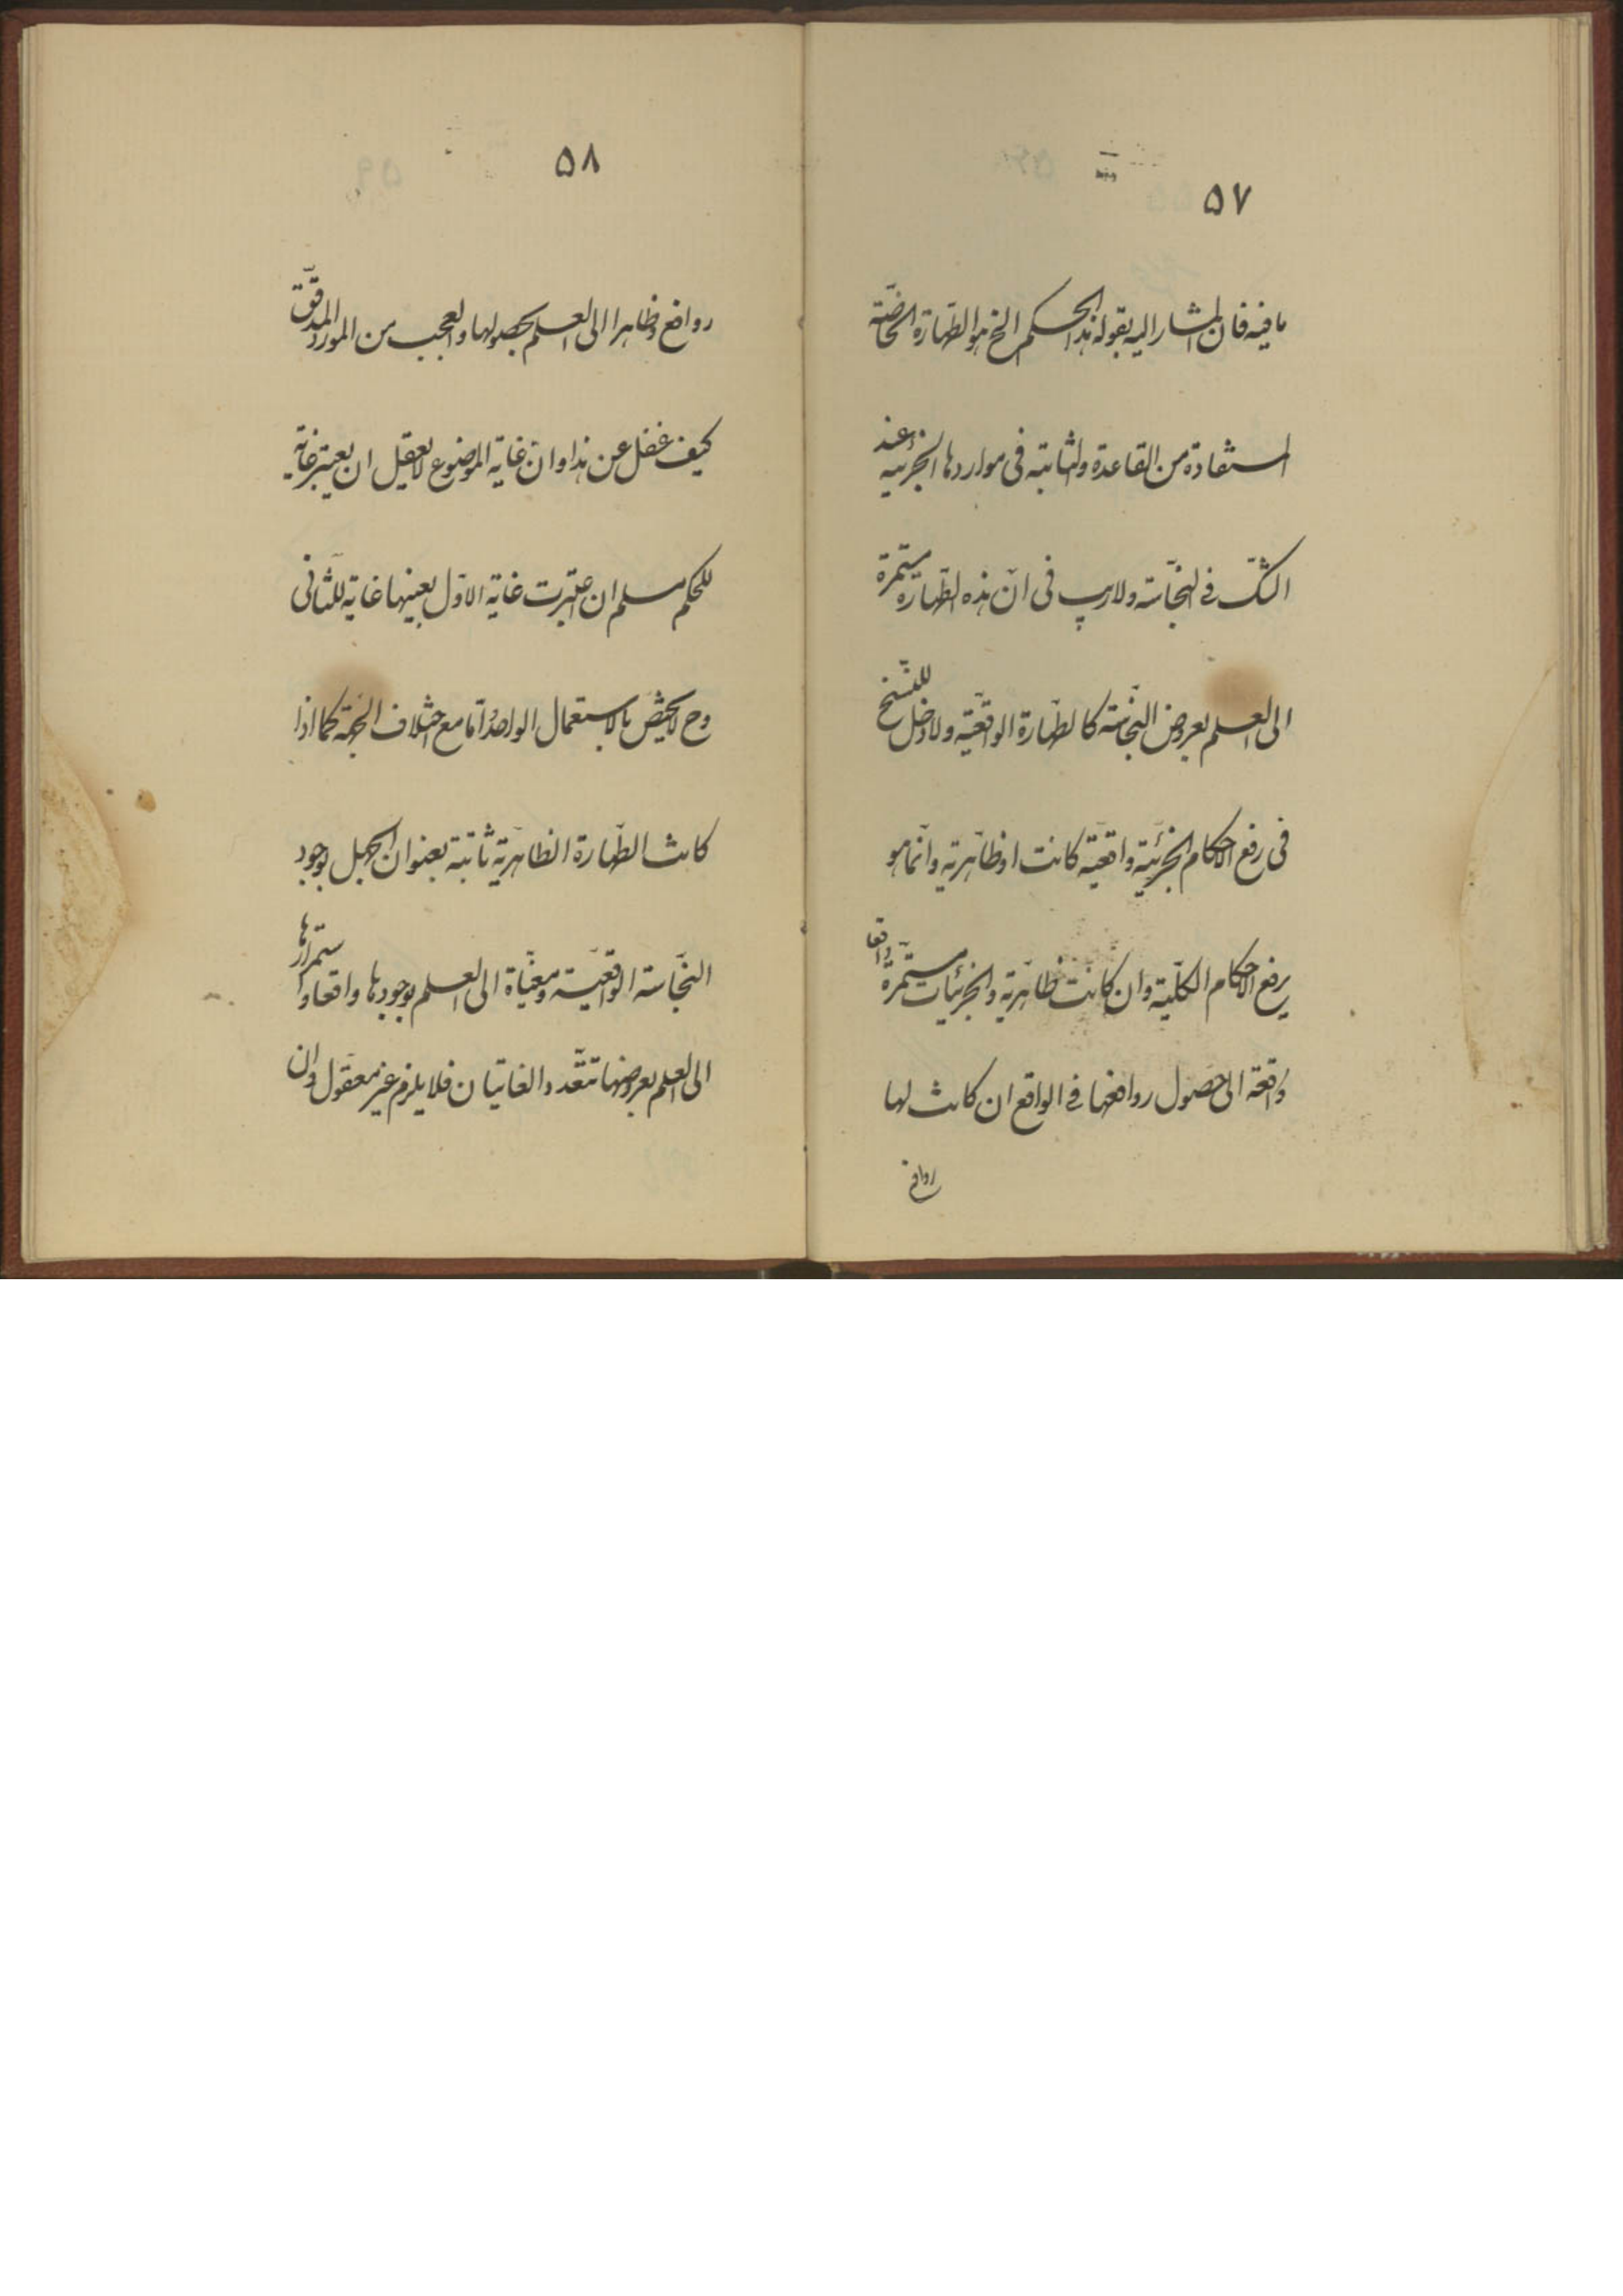 ٥٧
ما فيه فان المشار اليه بقوله هذا الحكم الخ هو الطهارة الخاصّة
المستفادة من القاعدة والثابتة فى مواردها الجزئيه عند
الشكّ فى النجاسة ولا ريب فى انّ هذه الطّهارة مستمرة
الى العلم بعروض النّجاسة كالطهارة الواقعيّة ولا دخل للنّسخ
فى رفع الاحكام الجزئيّة واقعيّة كانت او ظاهريّة وانّما هو
يرفع الاحكام الكلّية وان كانت ظاهريّة والجزئيات مستمّرة واقعا
واقعة الى حصول روافعها فى الواقع ان كانت لها
روافع
٥٨
روافع وظاهرا الى العلم بحصولها والعجب من المورد المدقّق
كيف غفل عن هذا وان غاية الموضوع لا يعقل ان يعتبر غاية
للحكم مسلم ان اعتبرت غاية الاوّل بعينها غاية للثّانى
وح لا يختصّ بالاستعمال الواحد وامّا مع اختلاف الجهة كما اذا
كانت الطّهارة الظاهريّة ثابتة بعنوان الجهل بوجود
النّجاسة الواقعيّة ومغيّاة الى العلم بوجودها واقعا واستمرارها
الى العلم بعروضها تتعّدد الغايتان فلا يلزم غير معقول وان